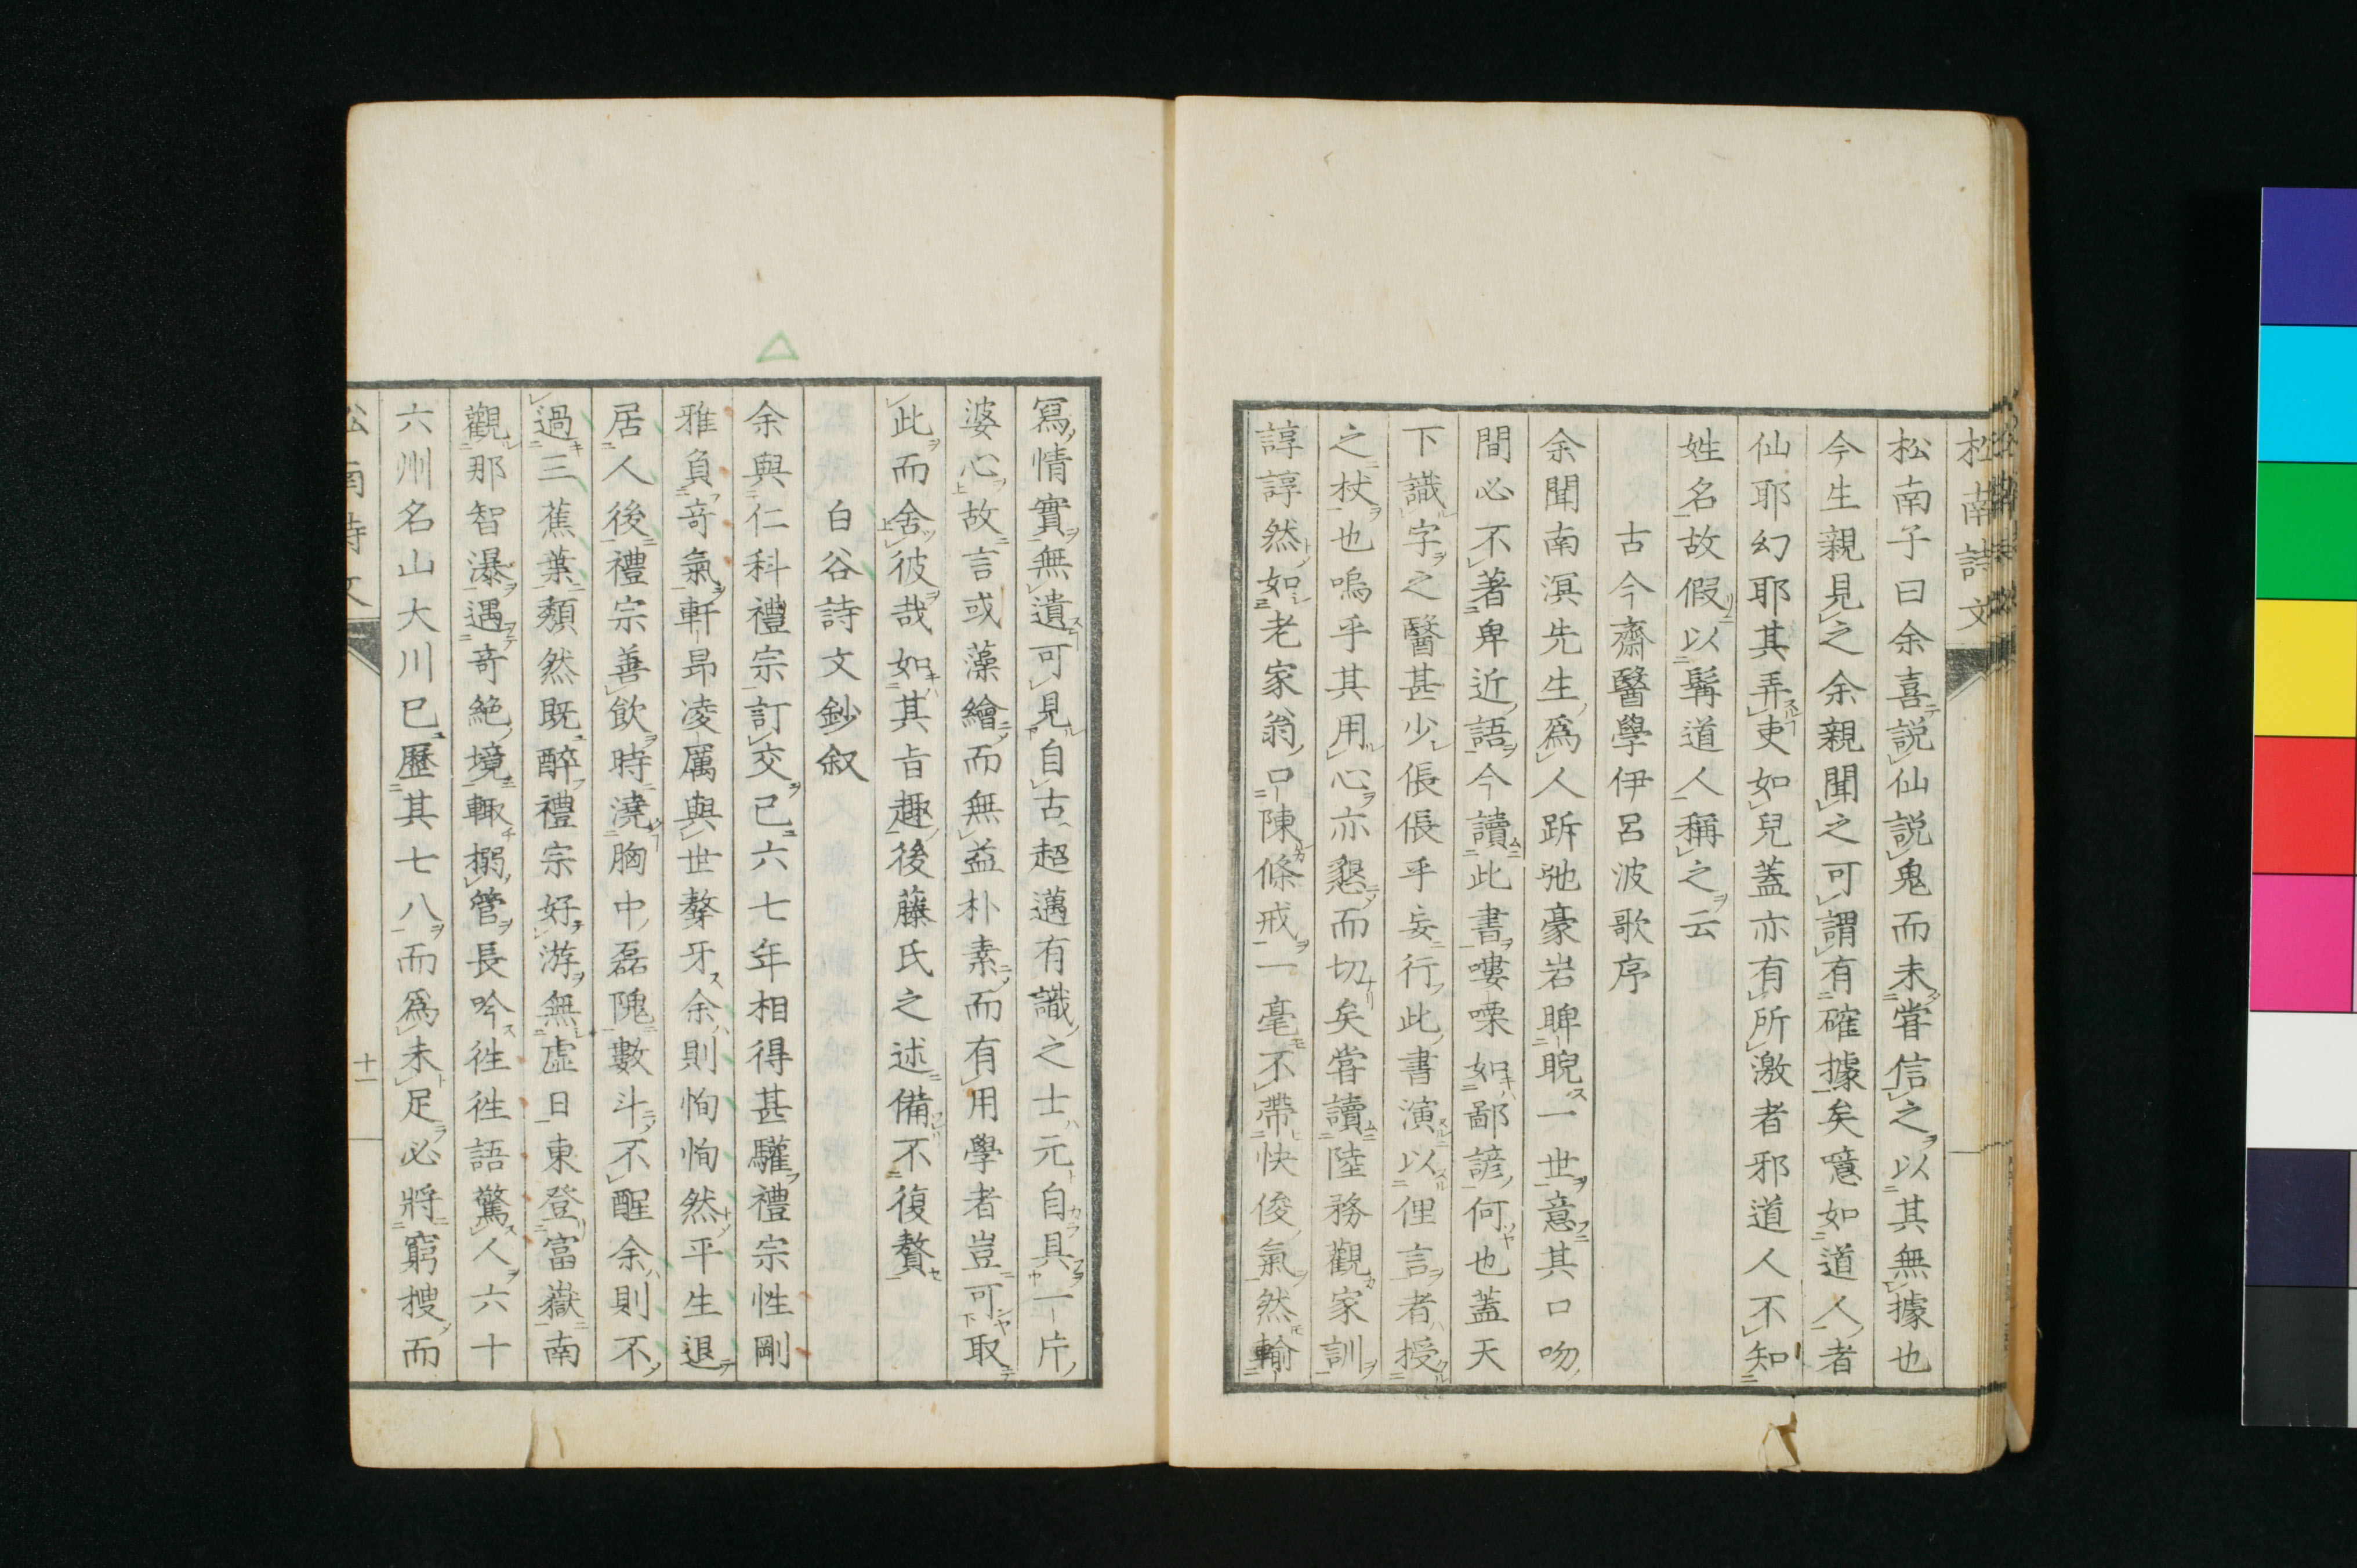 松南詩文
松南子曰余喜説仙説鬼而未嘗信之以其無據也
今生親見之余親聞之可謂有確據矣噫如道人者
仙耶幻耶其弄吏如兒蓋亦有所激者邪道人不知
姓名故假以髯道人稱之云
古今齋醫學伊呂波歌序
余聞南溟先生爲人跅弛豪岩睥睨一世意其口吻
間必不著卑近語今讀此書嘍㗚如鄙諺何也蓋天
下識字之醫甚少倀倀乎妄行此書演以俚言者授
之杖也嗚乎其用心亦懇而切矣嘗讀陸務觀家訓
諄諄然如老家翁口陳條戒一毫不帶快俊氣然輸
寫情實無遺可見自古超邁有識之士元自具一片
婆心故言或藻繪而無益朴素而有用學者豈可取
此而舍彼哉如其旨趣後藤氏之述備不復贅
白谷詩文鈔叙
余與仁科禮宗訂交已六七年相得甚驩禮宗性剛
雅負奇氣軒昂凌厲與世謷牙余則恂恂然平生退
居人後禮宗善飲時澆胸中磊隗數斗不醒余則不
過三蕉葉頽然既醉禮宗好游無虛日東登富嶽南
觀那智瀑遇奇絶境輙搦管長吟徃徃語驚人六十
六州名山大川已歷其七八而爲未足必將窮搜而
松南詩文
十一